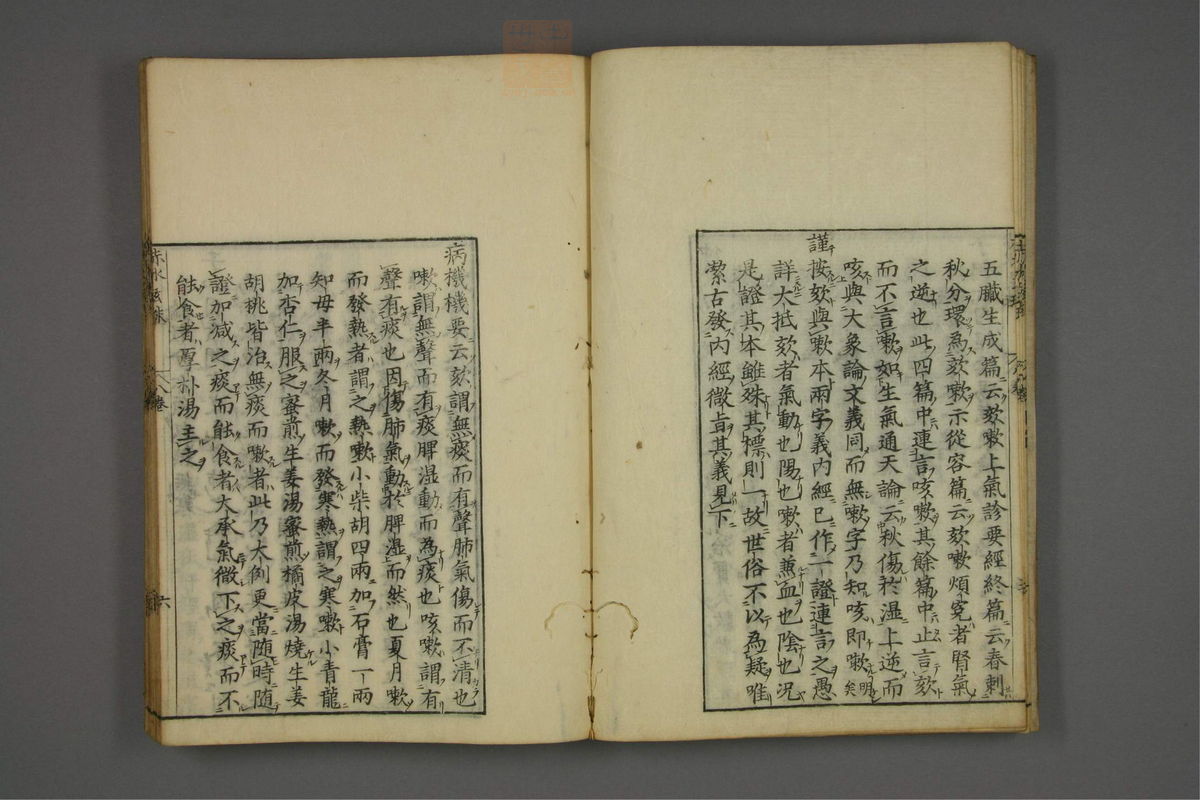 五臟生成篇云欬嗽上氣診要經終篇云春刺
秋分環爲欬嗽示從容篇云欬嗽煩寃者腎氣
之逆也此四篇中連言咳嗽其餘篇中止言欬
而不言嗽如生氣通天論云秋傷於湿上逆而
咳與大象論文義同而無嗽字乃知咳即嗽明矣
謹按欬與嗽本兩字義内經已作一證連言之愚
詳大抵欬者氣動也陽也嗽者蒹血也陰也况
是證其本雖殊其標則一故世俗不以為疑唯
潔古發内經微旨其義見下
病機機要云欬謂無痰而有聲肺氣傷而不清也
嗽謂無聲而有痰脾湿動而為痰也咳嗽謂有
聲有痰也因傷肺氣動於脾湿而然也夏月嗽
而發熱者謂之熱嗽小柴胡四兩加石膏一兩
知母半兩冬月嗽而發寒熱謂之寒嗽小青龍
加杏仁服之蜜煎生姜湯蜜煎橘皮湯燒生姜
胡桃皆治無痰而嗽者此乃大例更當随時随
證加减之痰而能食者大承氣微下之痰而不
能食者厚朴湯主之
赤水玄珠
八卷
六